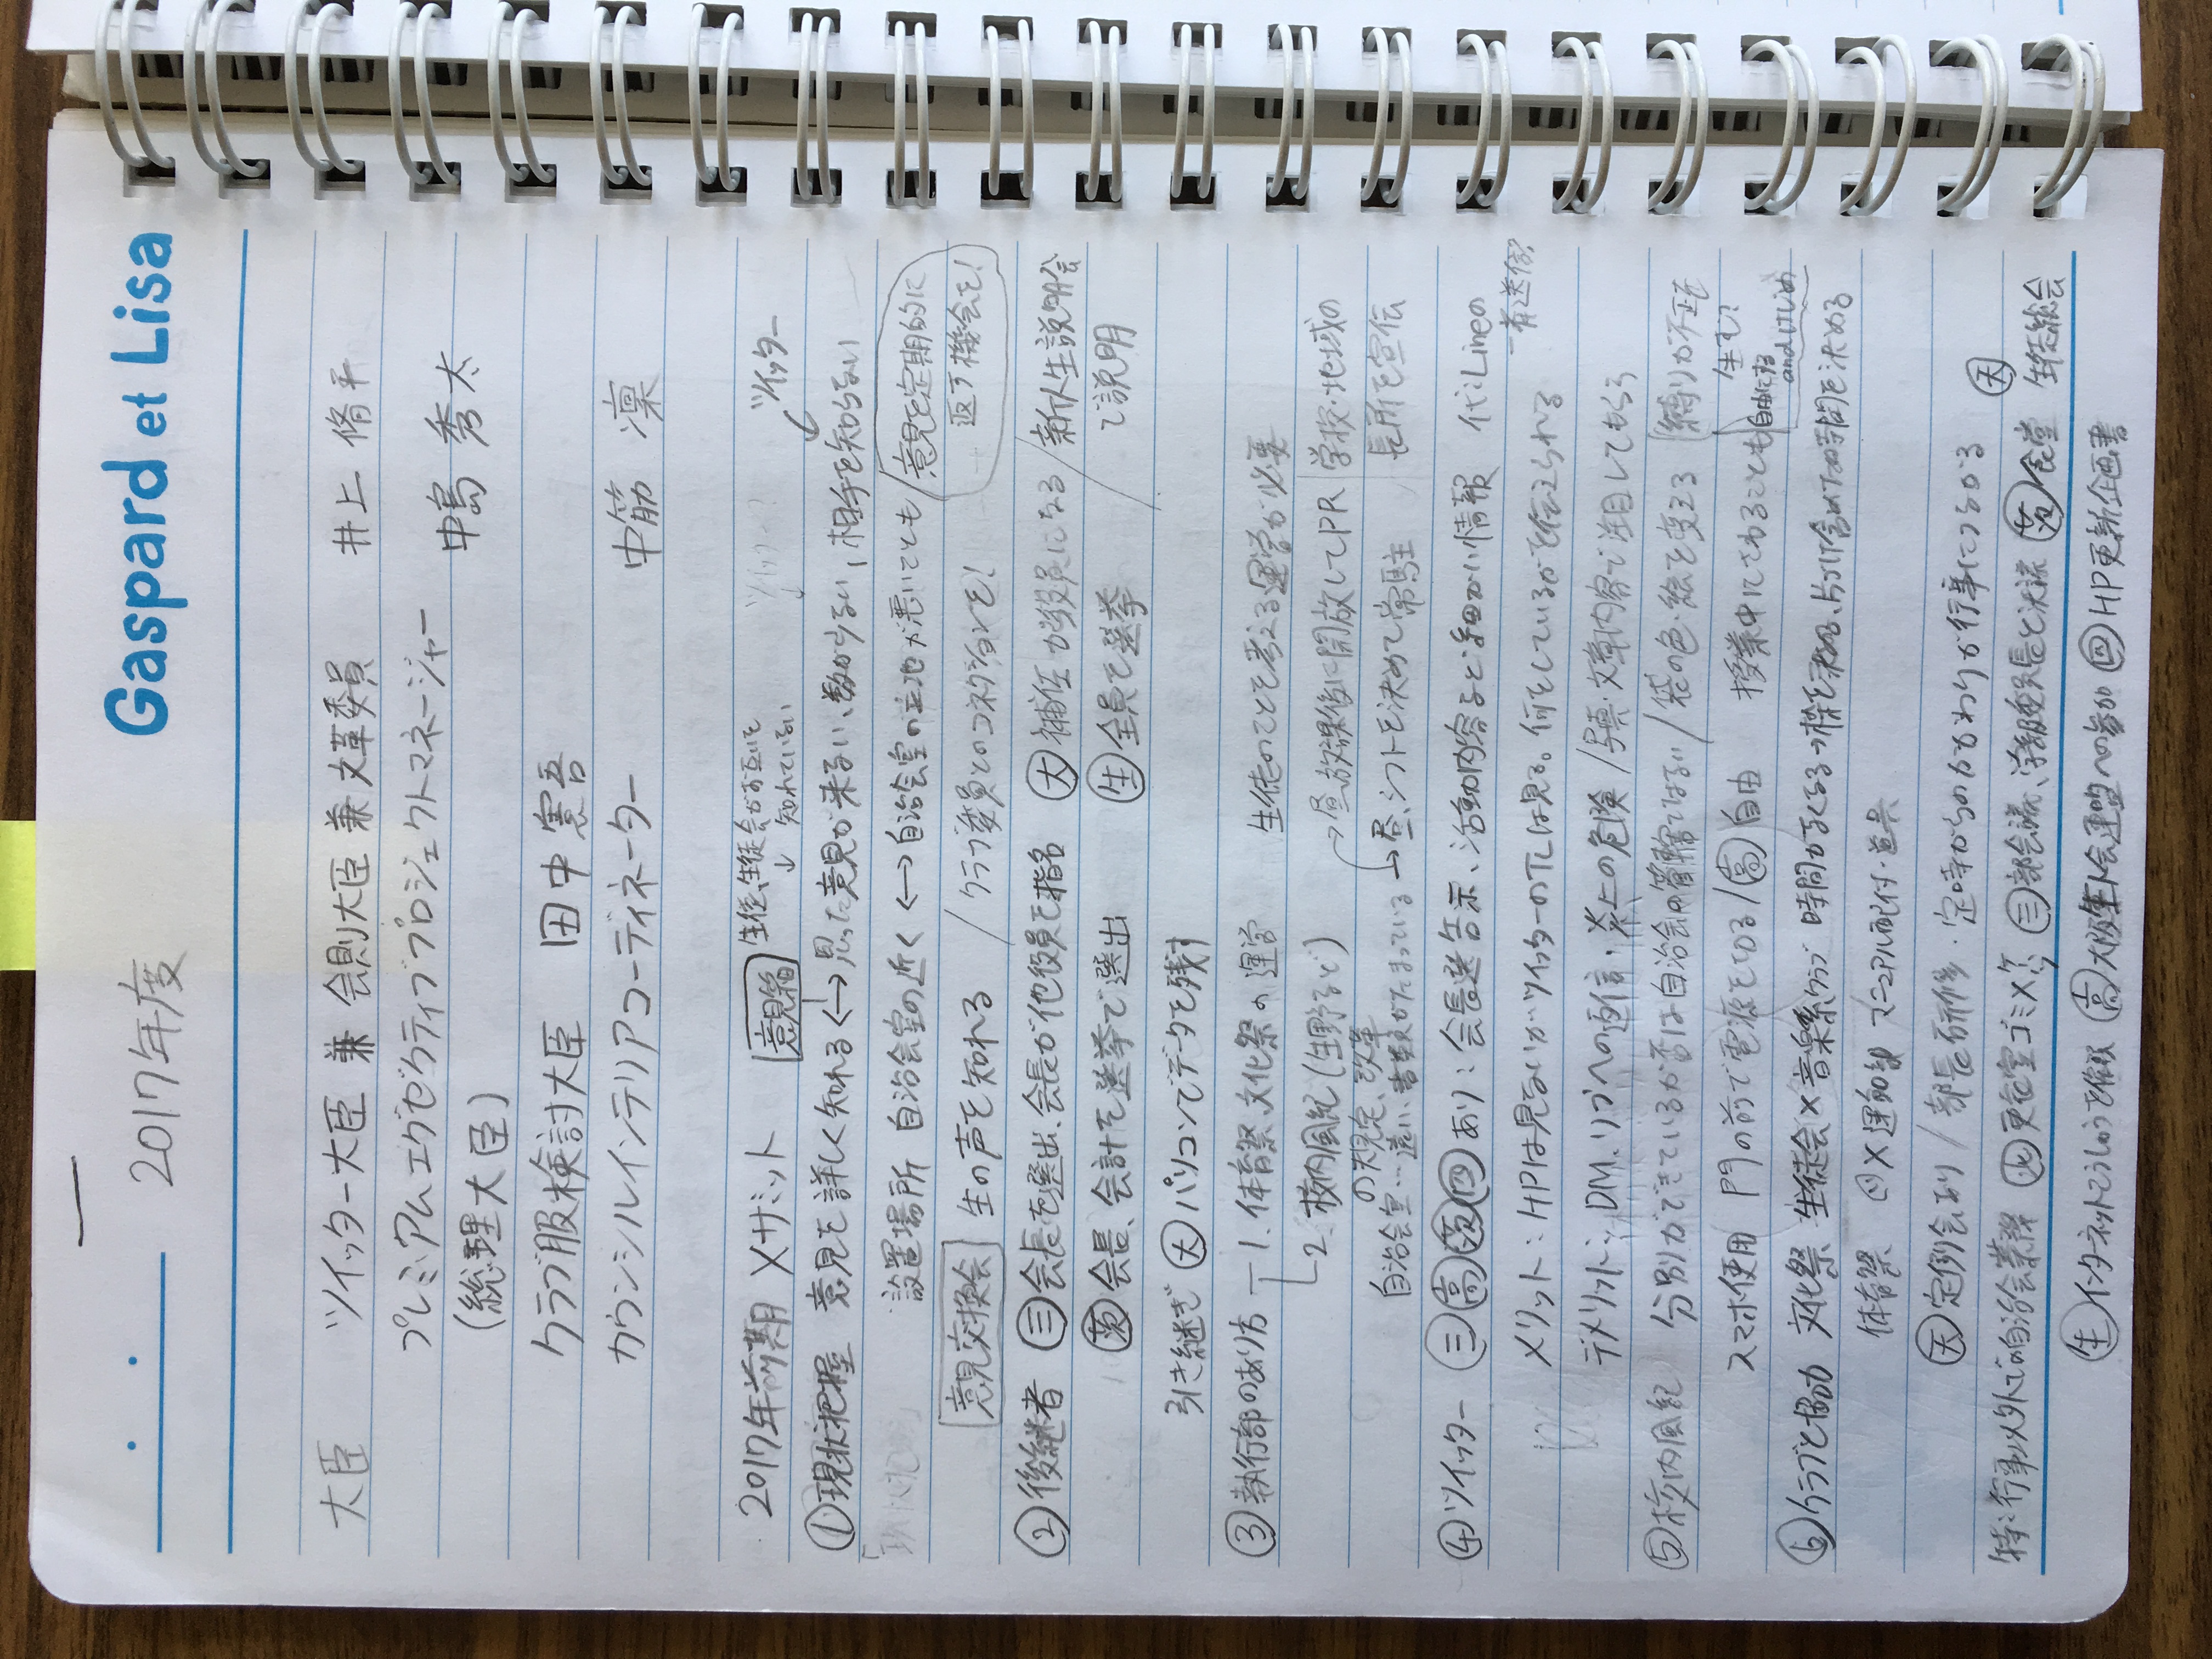 2017年度
Gaspard et Lisa
大臣 ツイッター大臣 兼 会則大臣 兼 文革委員 井上 脩平
プレミアムエグゼクティブプロジェクトマネージャー
(総理大臣) 中島 秀太
クラブ服検討大臣 田中 憲吾
カウンシルインテリアコーディネーター 中筋 凜
2017年前期 Xサミット 意見箱 生徒、生徒会がお互いを ツイッター
↓ 知れていない
①現状把握 意見を詳しく知れる ←→ 思った意見が来ない、数が少ない、相手を知らない
設置場所 自治会室の近く ←→ 自治会室の立地が悪いことも 意見を定期的に
返す機会を!
意見交換会 生の声を知れる / クラブ委員とのコネクションを!
②後継者 ㊂会長を選出、会長が他役員を指名 大 補佐が役員になる / 新入生説明会
茨 会長、会計を選挙で選出 生 全員を選挙 で説明
引き継ぎ 大 パソコンでデータを残す
③執行部のあり方 1. 体育祭、文化祭の運営 生徒のことを考える運営が必要
2. 校内風紀(生野など) → 昼、放課後に開放してPR 学校・地域の
の規定、改革
自治会室…遠い、書類がたまっている → 昼、シフトを決めて常駐 長所を宣伝
④ツイッター 三 高 茨 四 あり:会長選告示、活動内容など細かい情報 代:Lineの
一斉送信?
メリット:HPは見ないがツイッターのTLは見る。何をしているかを伝えられる
デメリット:DM、リプへの返信・炎上の危険 / 写真・文章内容で注目してもらう
⑤校内風紀 分別ができているか否は自治会の管轄ではない / 袋の色・絵を変える 縛りが不正を
生む?
スマホ使用 門の前で電源を切る / 高 自由 授業中にさわることも 自由にする
andけじめ
⑥クラブと協力 文化祭 生徒会×音楽系クラブ 時間がなくなる→枠を決める、片づけ含めた時間を決める
体育祭 四×運動部 マニュアル配付・道具
天 定例会あり / 部長研修・定時からのかかわりが行事につながる
特:行事以外での自治会業務 北 更衣室ゴミ 三 部会議、学級委員長と決議 茨 食堂 天 生徒総会
生 インターネットこうしゅうを催促 高 大阪生ト会連盟への参加 四 HP更新企画書